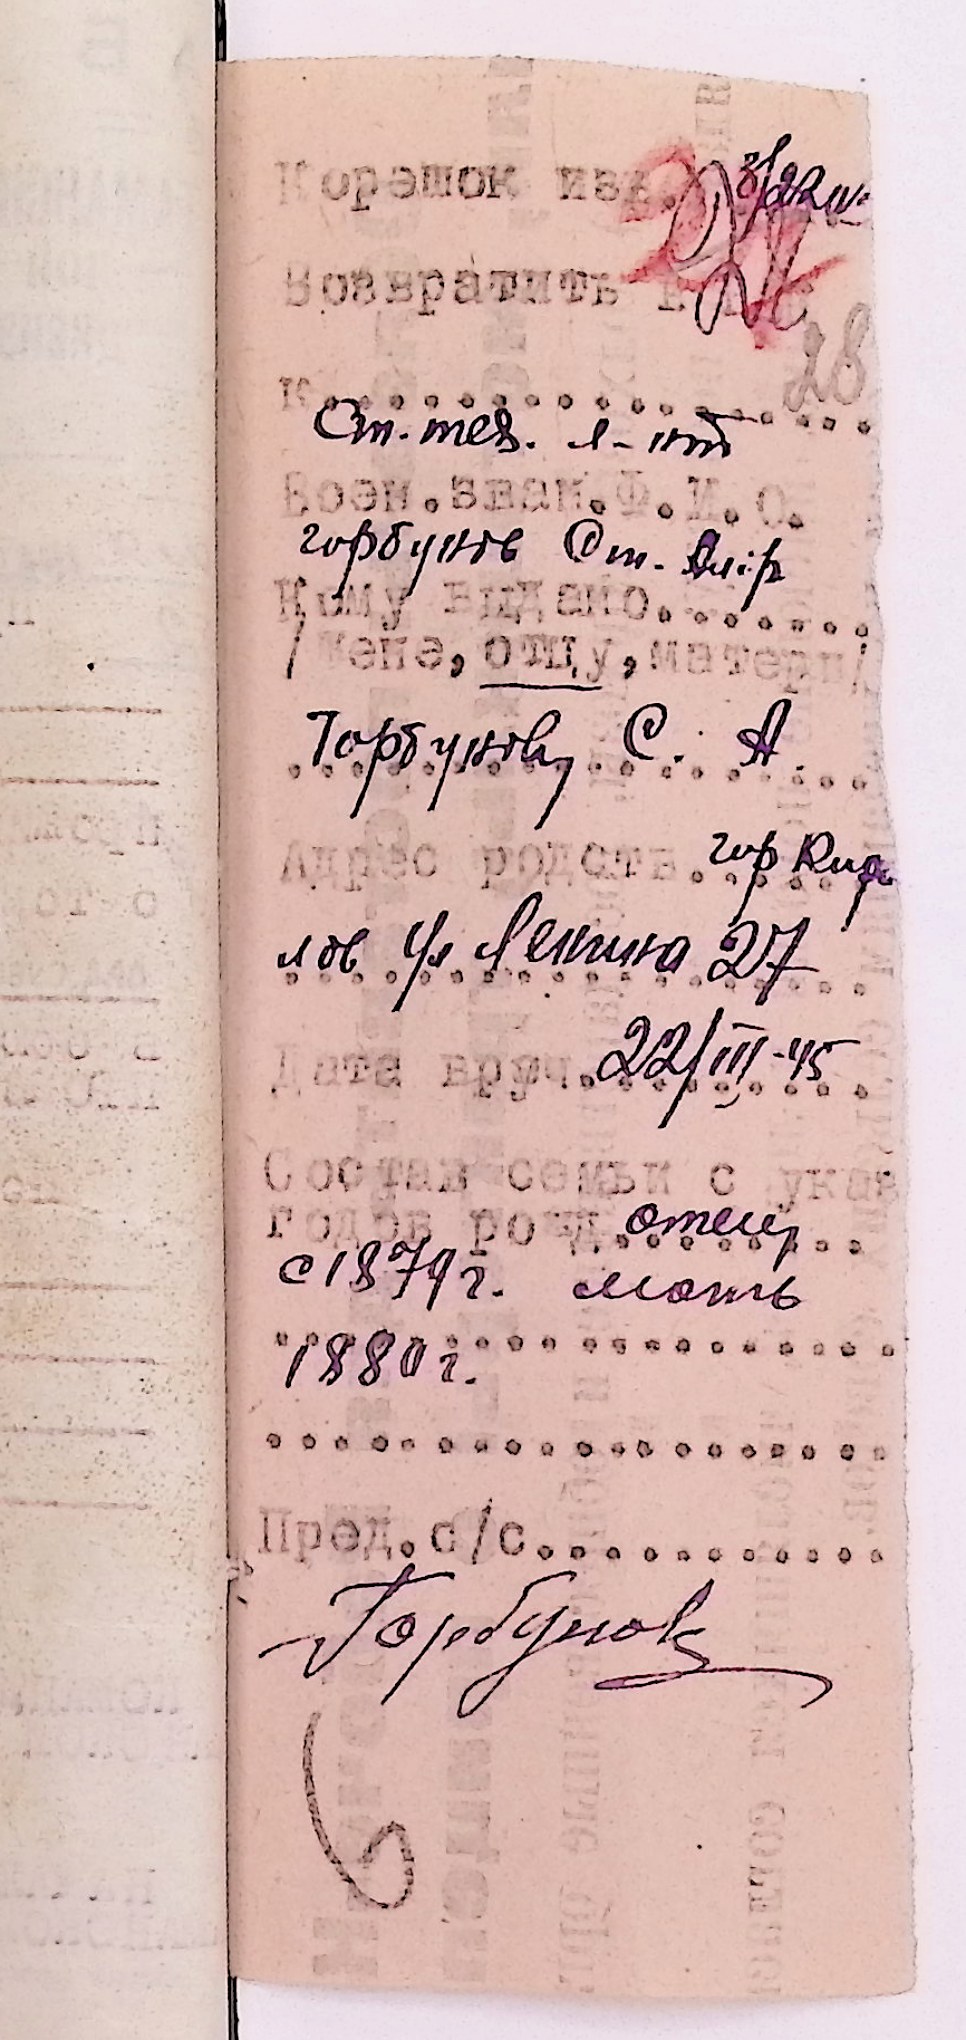 Корешок изв.
Возвратить
28
К..................
Ст. тех. л-нт
Воен.зван.Ф.И.О.
горбунов Ст.
Кому выдано.......
/Жене, отцу, матери/
Горбунову С. А.
Адрес родств. гор Кири
лов ул Ленина 27
Дата вруч. 22/III-45
Состав семьи с указ
годов рожд. отец
с 1879 г. мать
1880 г.
Пред.с/с.............
Горбунов